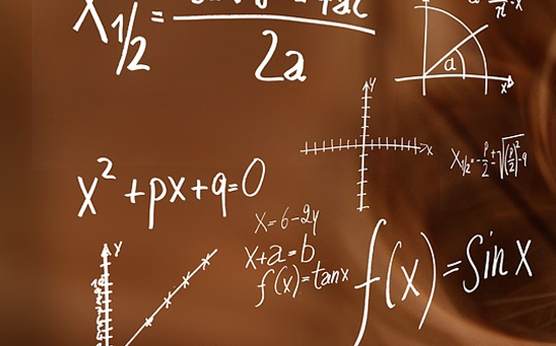 X₁/₂ = 2a
a
x
y
x
X₁/₂=-p/2±√(p/2)²-q
x²+px+q=0
x=6-2y
x+a=b
f(x)=tanx
f(x)=Sin x
y